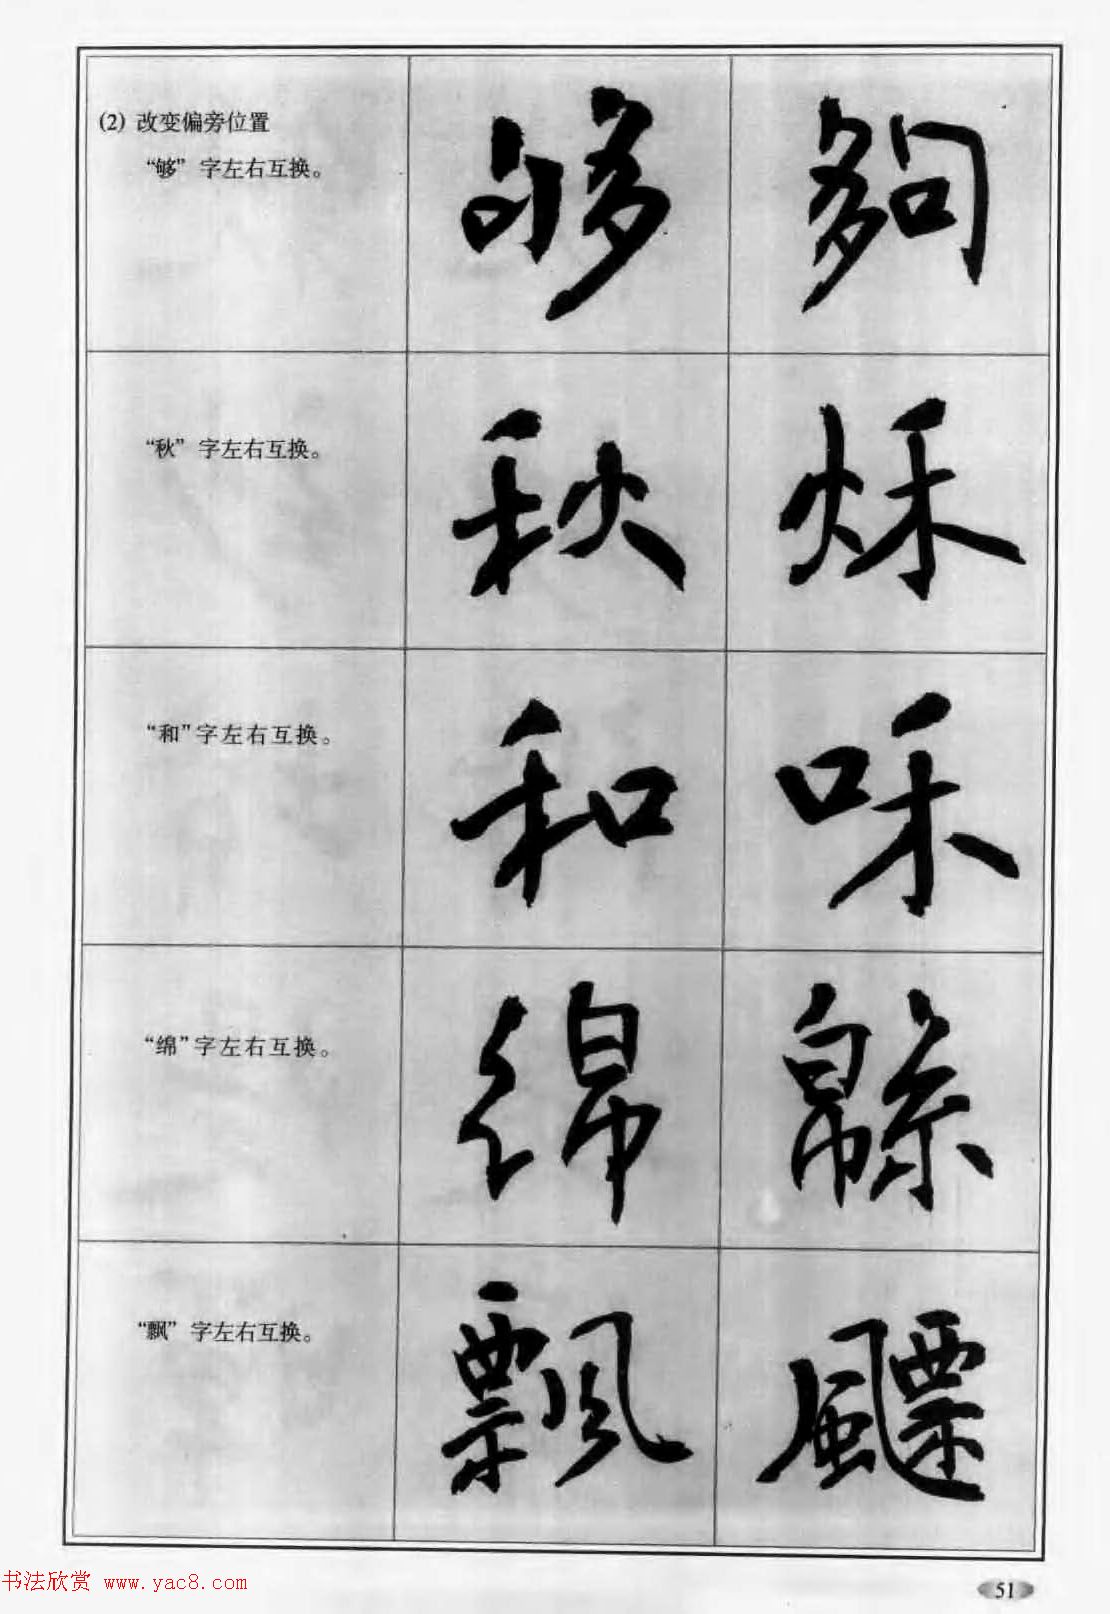 (2) 改变偏旁位置
“够” 字左右互换。
够 夠
“秋” 字左右互换。
秋 秌
“和”字左右互换。
和 咊
“绵”字左右互换。
綿 緜
“飘” 字左右互换。
飄 飃
书法欣赏 www.yac8.com
51